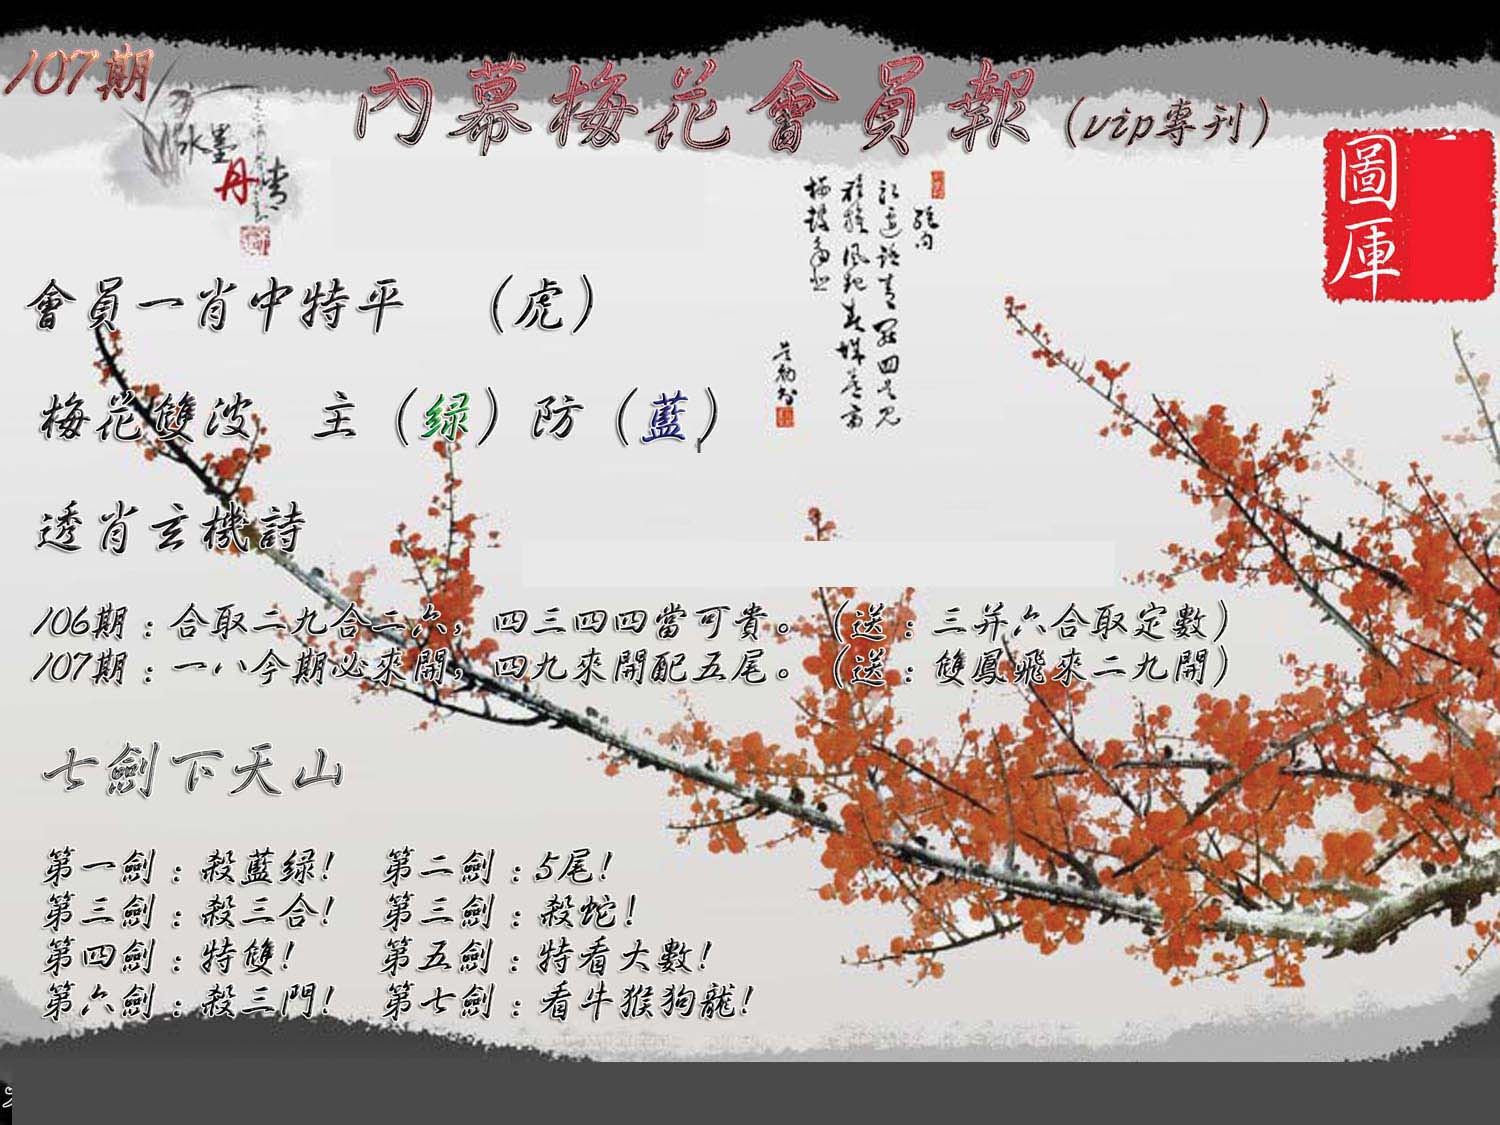 107期
內幕梅花會員報（vip專刊）
水墨
丹青
圖庫
會員一肖中特平　（虎）
梅花雙波　主（绿）防（藍）
透肖玄機詩
106期：合取二九合二六，四三四四當可貴。（送：三并六合取定數）
107期：一八今期必來開，四九來開配五尾。（送：雙鳳飛來二九開）
七劍下天山
第一劍：殺藍绿！　第二劍：5尾！
第三劍：殺三合！　第三劍：殺蛇！
第四劍：特雙！　第五劍：特看大數！
第六劍：殺三門！　第七劍：看牛猴狗龍！